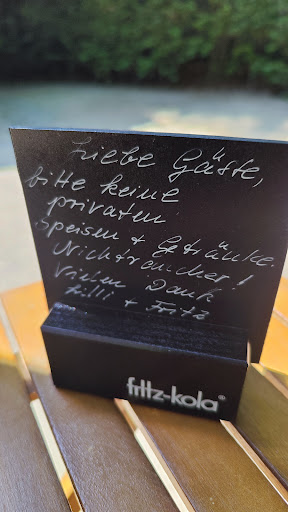 Liebe Gäste,
bitte keine
privaten
Speisen + Getränke.
Nichtraucher!
Vielen Dank
Lilli + Fritz
fritz-kola®